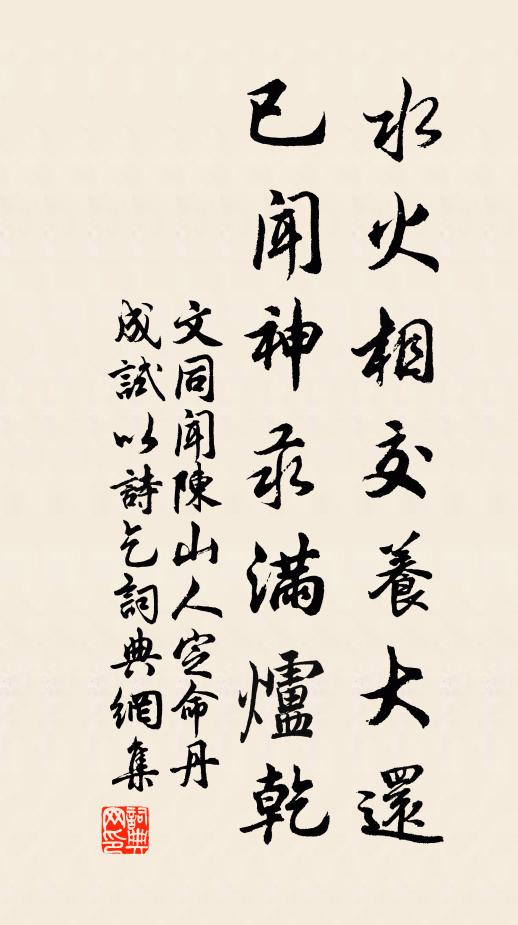 水火相交養大還
已聞神汞滿爐乾
文同聞陳山人定命丹
成試以詩乞詞典網集
詞典网印